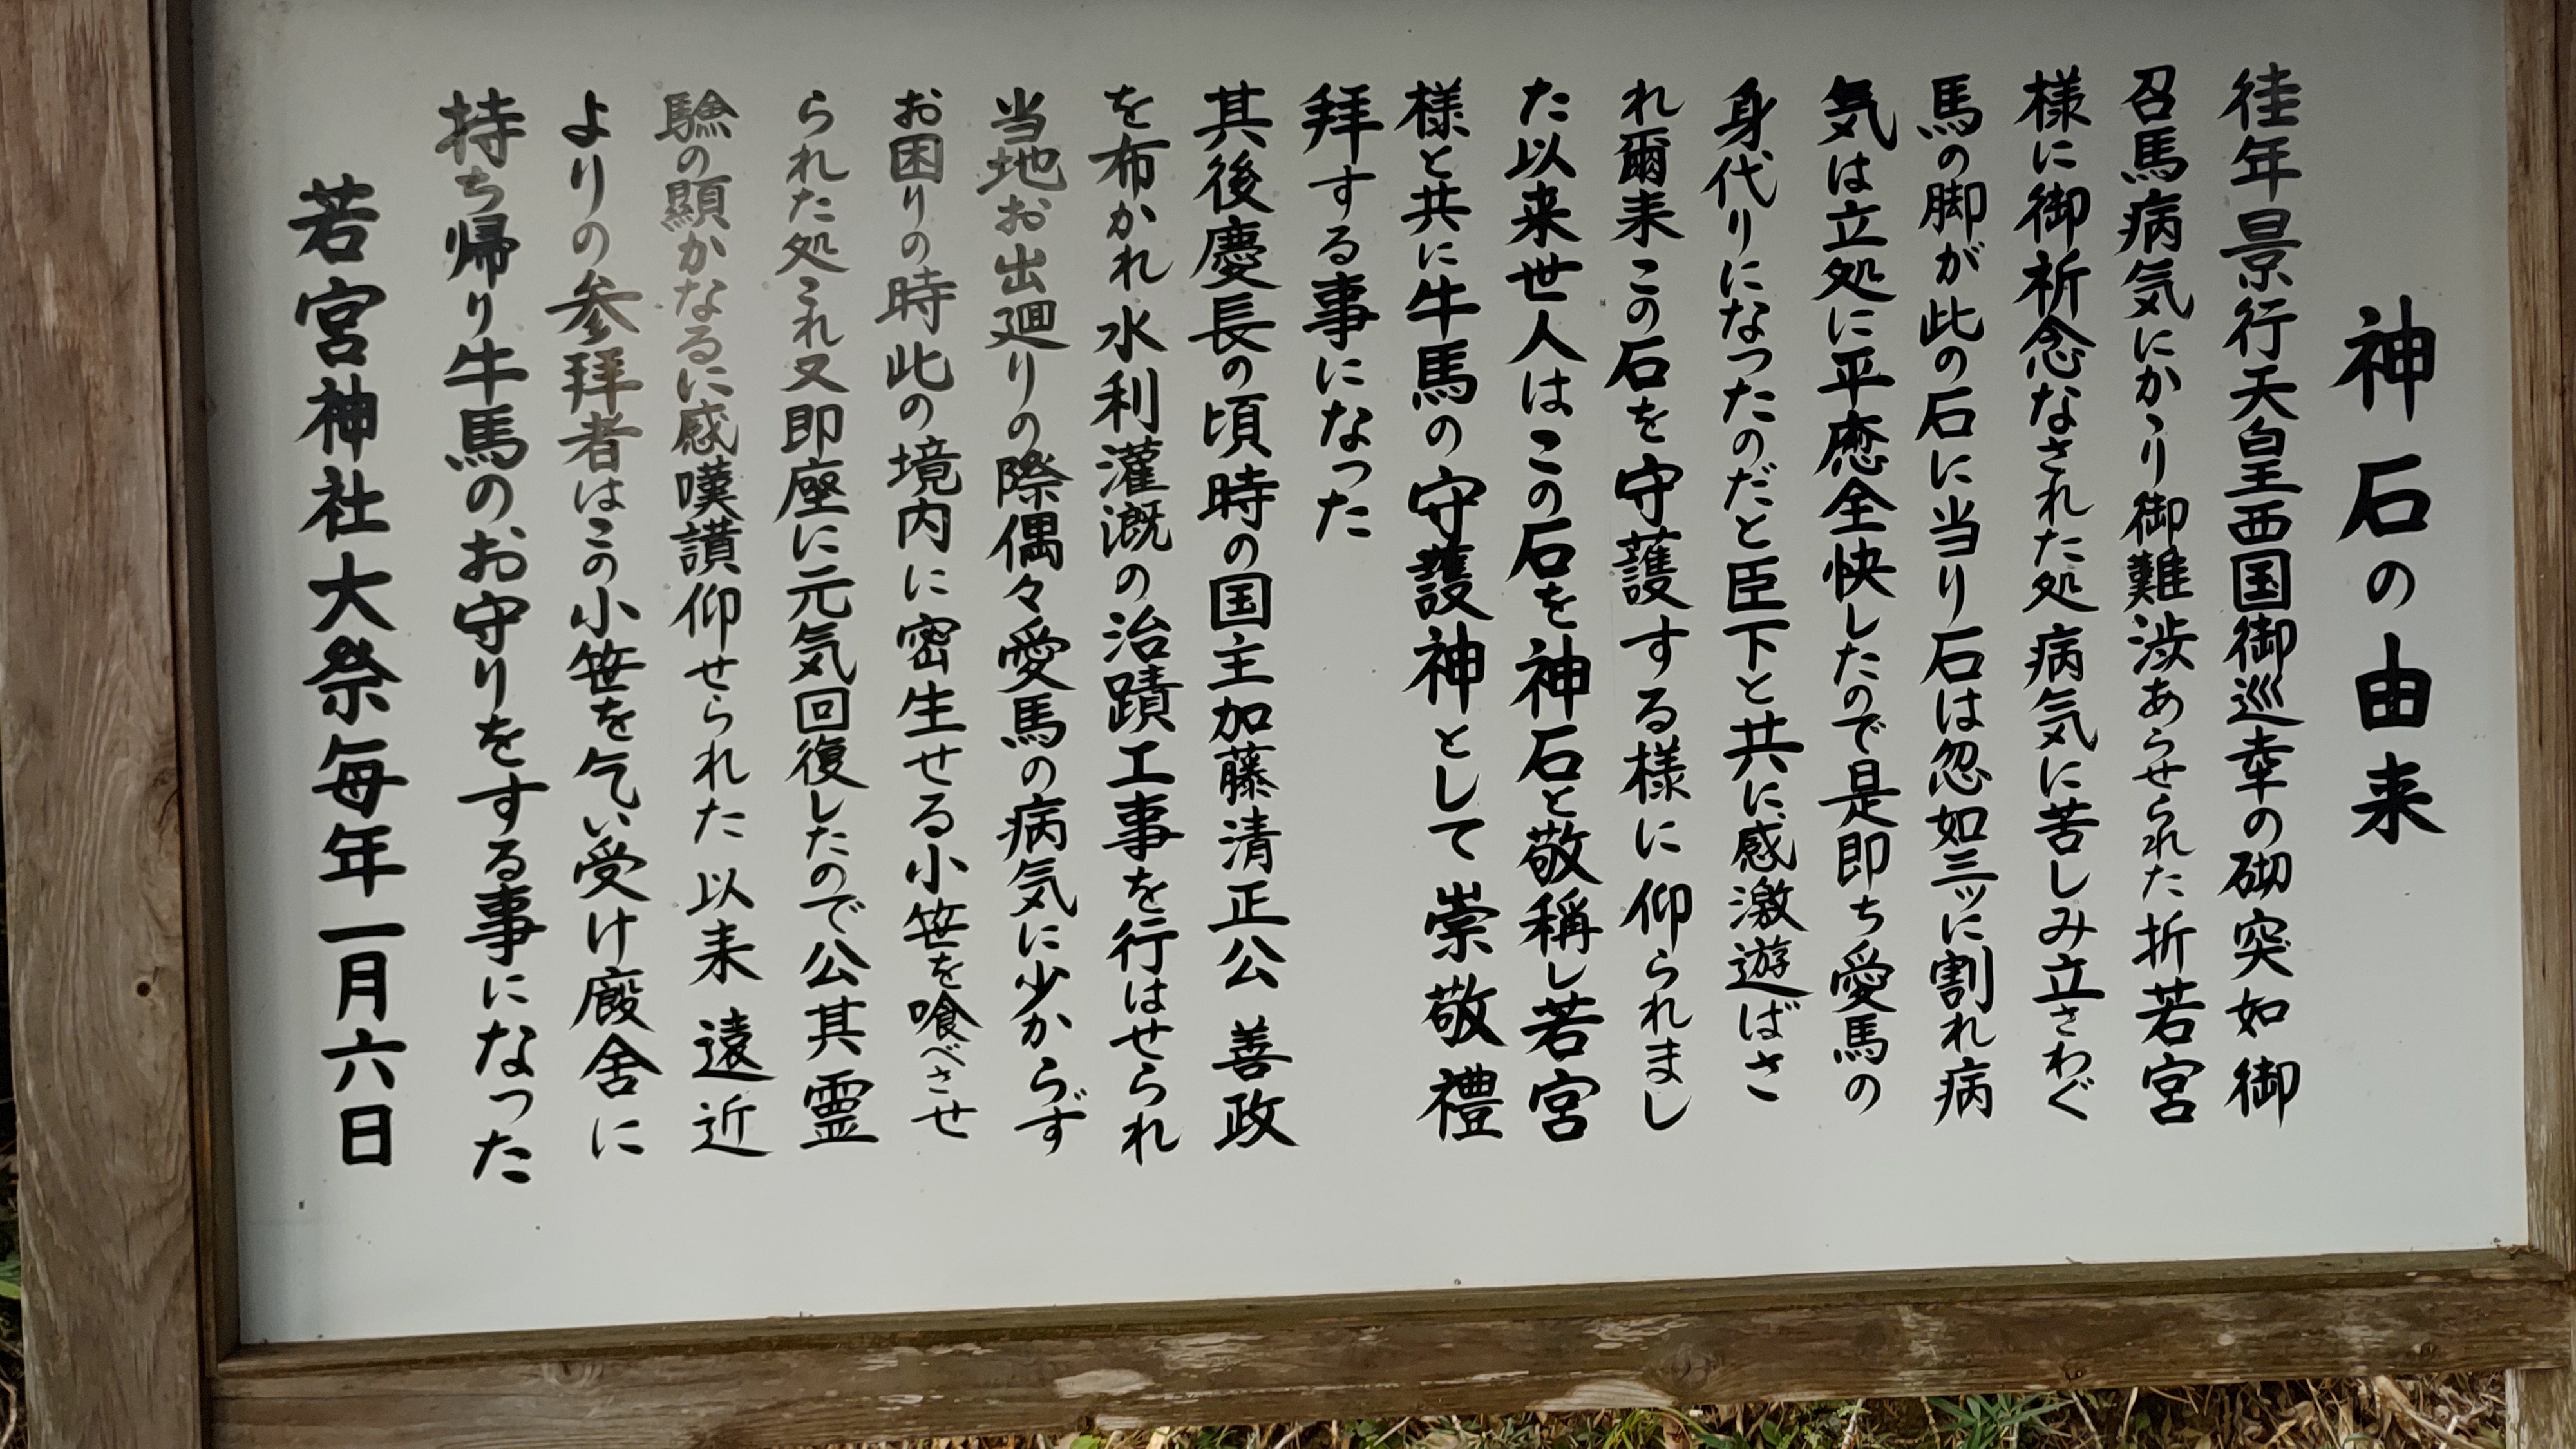 神石の由来
往年景行天皇西国御巡幸の砌突如御
召馬病気にかゝり御難渋あらせられた折若宮
様に御祈念なされた処病気に苦しみ立さわぐ
馬の脚が此の石に当り石は忽如三ッに割れ病
気は立処に平癒全快したので是即ち愛馬の
身代りになつたのだと臣下と共に感激遊ばさ
れ爾来この石を守護する様に仰られまし
た以来世人はこの石を神石と敬稱し若宮
様と共に牛馬の守護神として崇敬禮
拝する事になった
其後慶長の頃時の国主加藤清正公善政
を布かれ水利灌漑の治蹟工事を行はせられ
当地お出廻りの際偶々愛馬の病気に少からず
お困りの時此の境内に密生せる小笹を喰べさせ
られた処これ又即座に元気回復したので公其霊
験の顕かなるに感嘆讃仰せられた以来遠近
よりの参拝者はこの小笹を乞い受け廏舎に
持ち帰り牛馬のお守りをする事になった
若宮神社大祭毎年一月六日